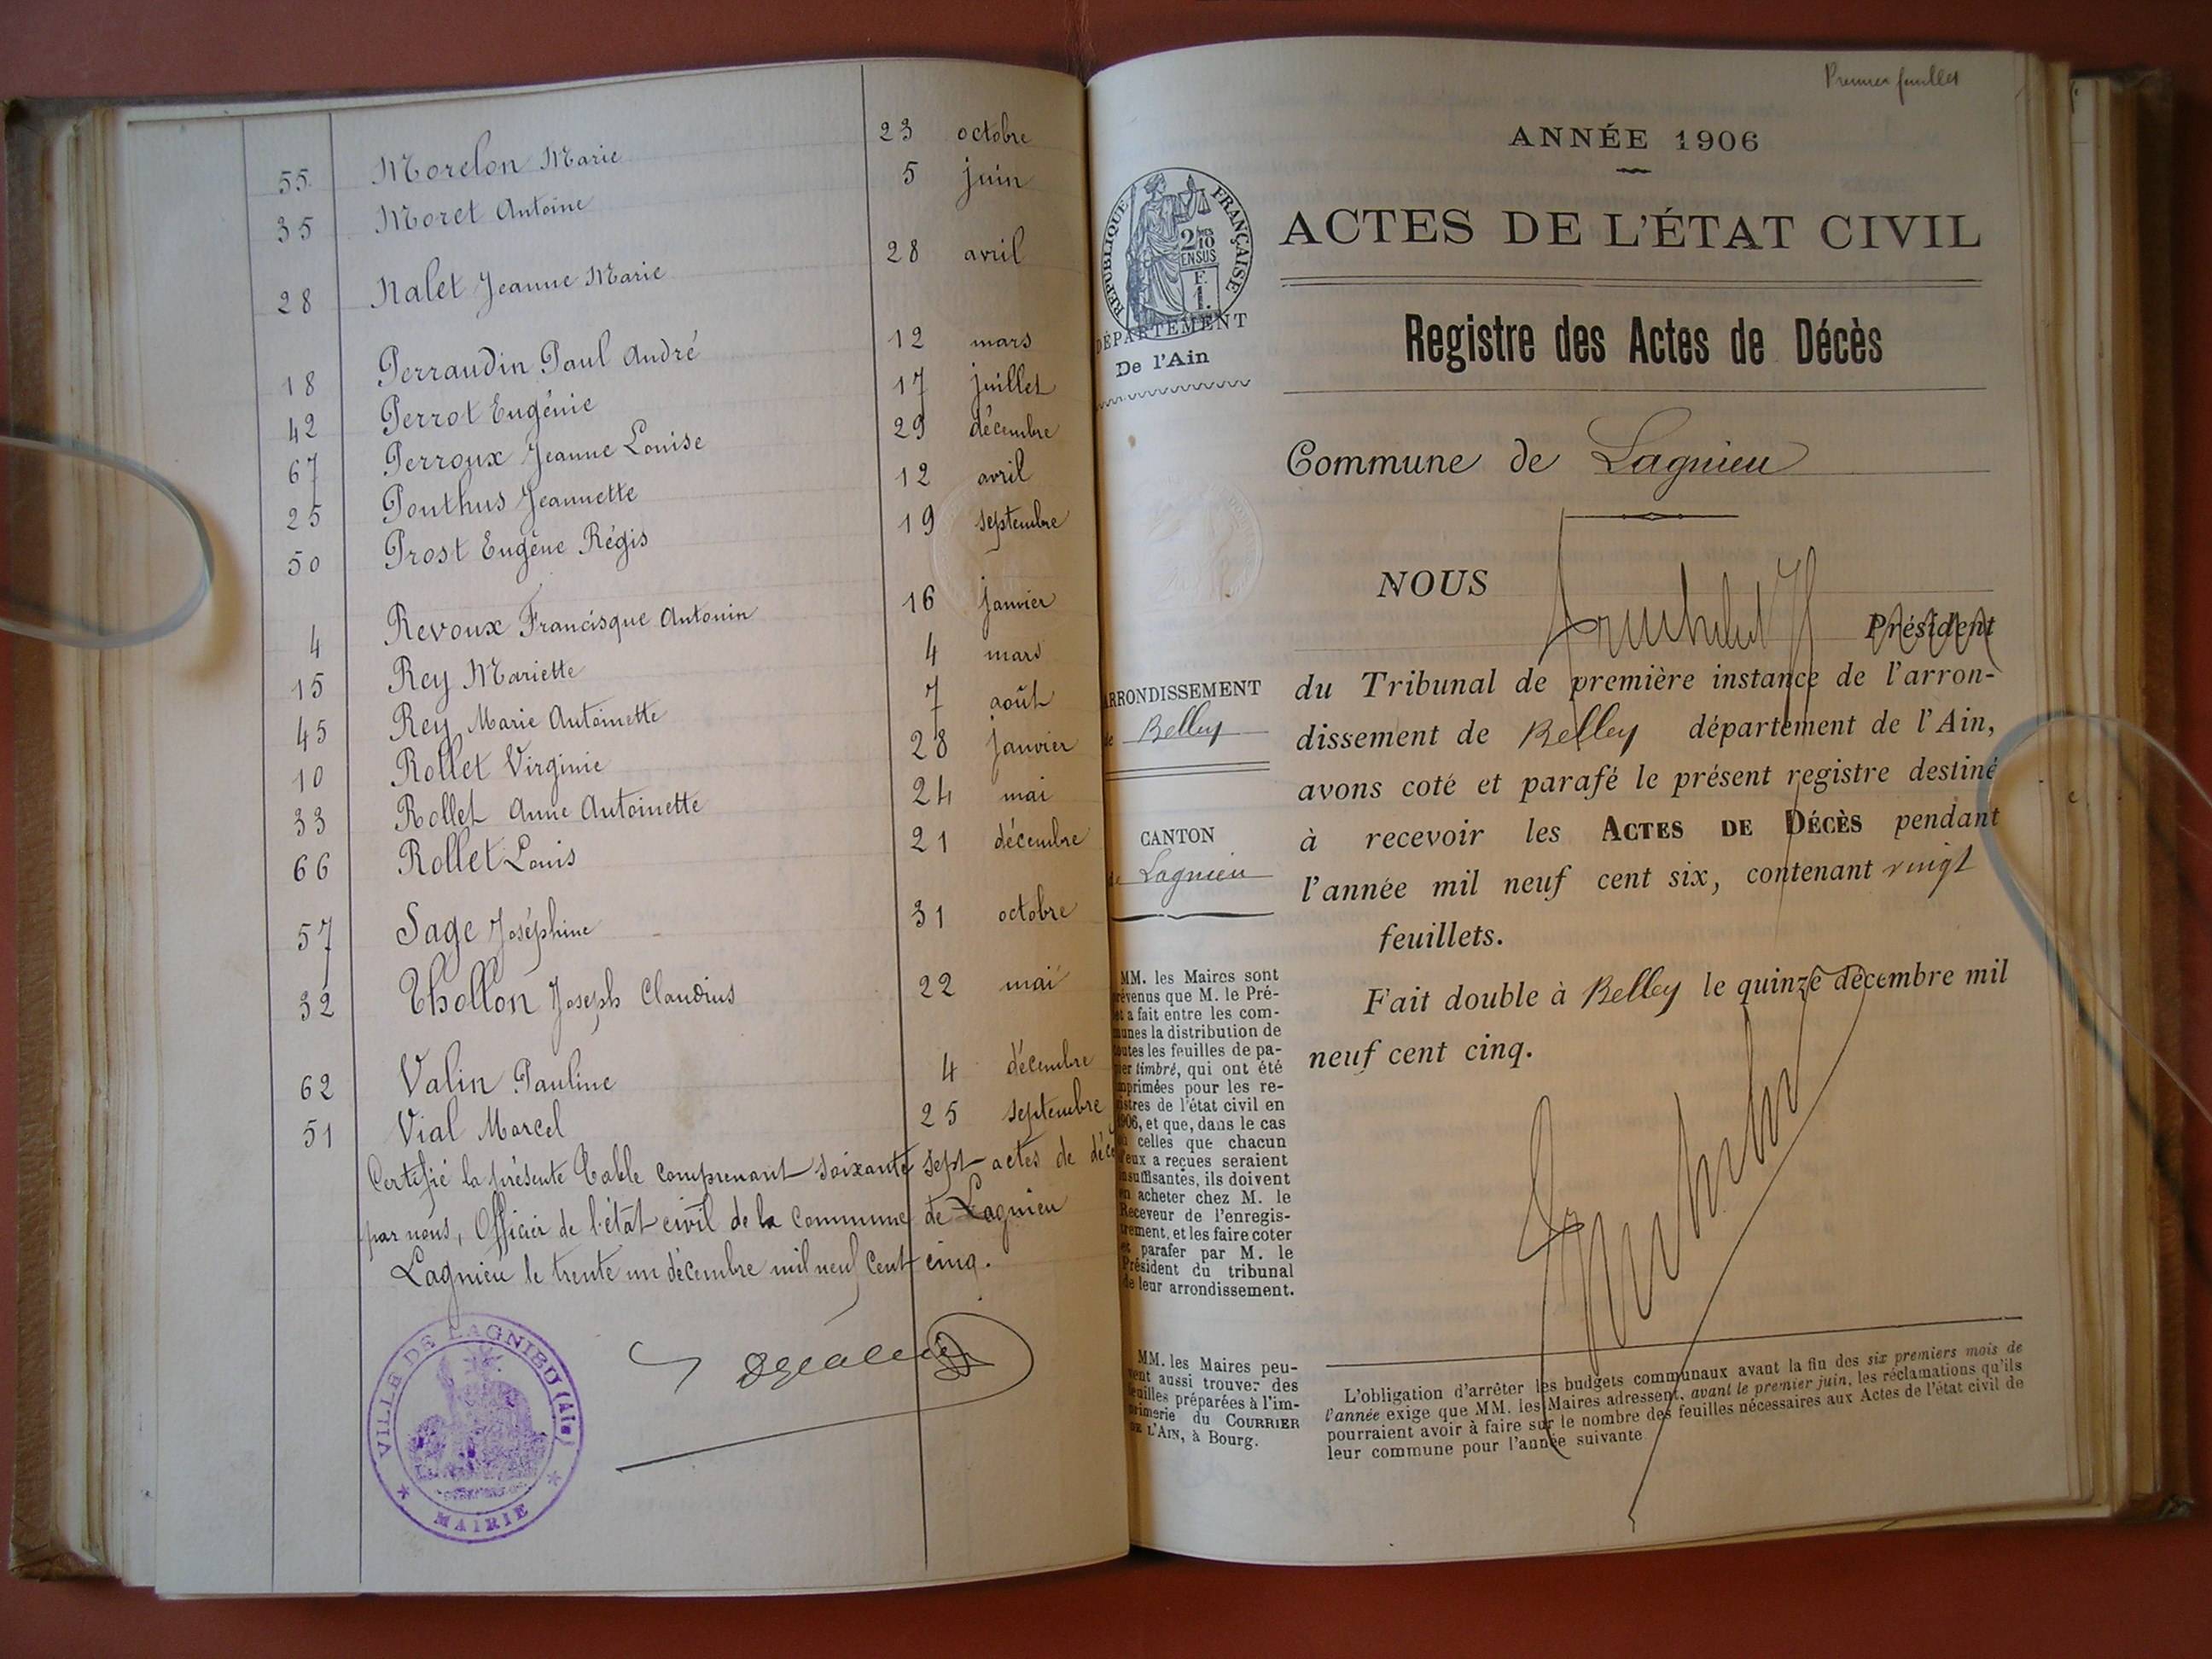 55 Morelon Marie 23 octobre
35 Moret Antoine 5 juin
28 Nalet Jeanne Marie 28 avril
18 Perraudin Paul André 12 mars
42 Perrot Eugénie 17 juillet
67 Perroux Jeanne Louise 29 décembre
25 Ponthus Jeannette 12 avril
50 Prost Eugène Régis 19 septembre
4 Revoux Francisque Antonin 16 janvier
15 Rey Mariette 4 mars
45 Rey Marie Antoinette 7 août
10 Rollet Virginie 28 janvier
33 Rollet Anne Antoinette 24 mai
66 Rollet Louis 21 décembre
57 Sage Joséphine 31 octobre
32 Thollon Joseph Claudius 22 mai
62 Valin Pauline 4 décembre
51 Vial Marcel 25 septembre
Certifié la présente Table comprenant soixante sept actes de décè
par nous, Officier de l'état civil de la Commune de Lagnieu
Lagnieu le trente un décembre mil neuf cent cinq.
VILLE DE LAGNIEU (Ain)
MAIRIE
Premier feuillet
ANNÉE 1906
RÉPUBLIQUE FRANÇAISE
2/10
EN SUS
F.
1.
DÉPARTEMENT
De l'Ain
ACTES DE L'ÉTAT CIVIL
Registre des Actes de Décès
Commune de Lagnieu
NOUS Président
du Tribunal de première instance de l'arron-
dissement de Belley département de l'Ain,
avons coté et parafé le présent registre destiné
à recevoir les ACTES DE DÉCÈS pendant
l'année mil neuf cent six, contenant vingt
feuillets.
Fait double à Belley le quinze décembre mil
neuf cent cinq.
ARRONDISSEMENT
de Belley
CANTON
de Lagnieu
MM. les Maires sont
prévenus que M. le Pré-
fet a fait entre les com-
munes la distribution de
toutes les feuilles de pa-
pier timbré, qui ont été
imprimées pour les re-
gistres de l'état civil en
1906, et que, dans le cas
où celles que chacun
d'eux a reçues seraient
insuffisantes, ils doivent
en acheter chez M. le
Receveur de l'enregis-
trement, et les faire coter
et parafer par M. le
Président du tribunal
de leur arrondissement.
MM. les Maires peu-
vent aussi trouver des
feuilles préparées à l'im-
primerie du COURRIER
DE L'AIN, à Bourg.
L'obligation d'arrêter les budgets communaux avant la fin des six premiers mois de
l'année exige que MM. les Maires adressent, avant le premier juin, les réclamations qu'ils
pourraient avoir à faire sur le nombre des feuilles nécessaires aux Actes de l'état civil de
leur commune pour l'année suivante